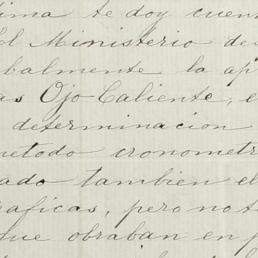 tima te doy cuen
ol Ministerio de
balmente la ap
as Ojo Caliente, e
determinacion
metodo cronometr
ado tambien el
raficas, pero no t
que obraban en p